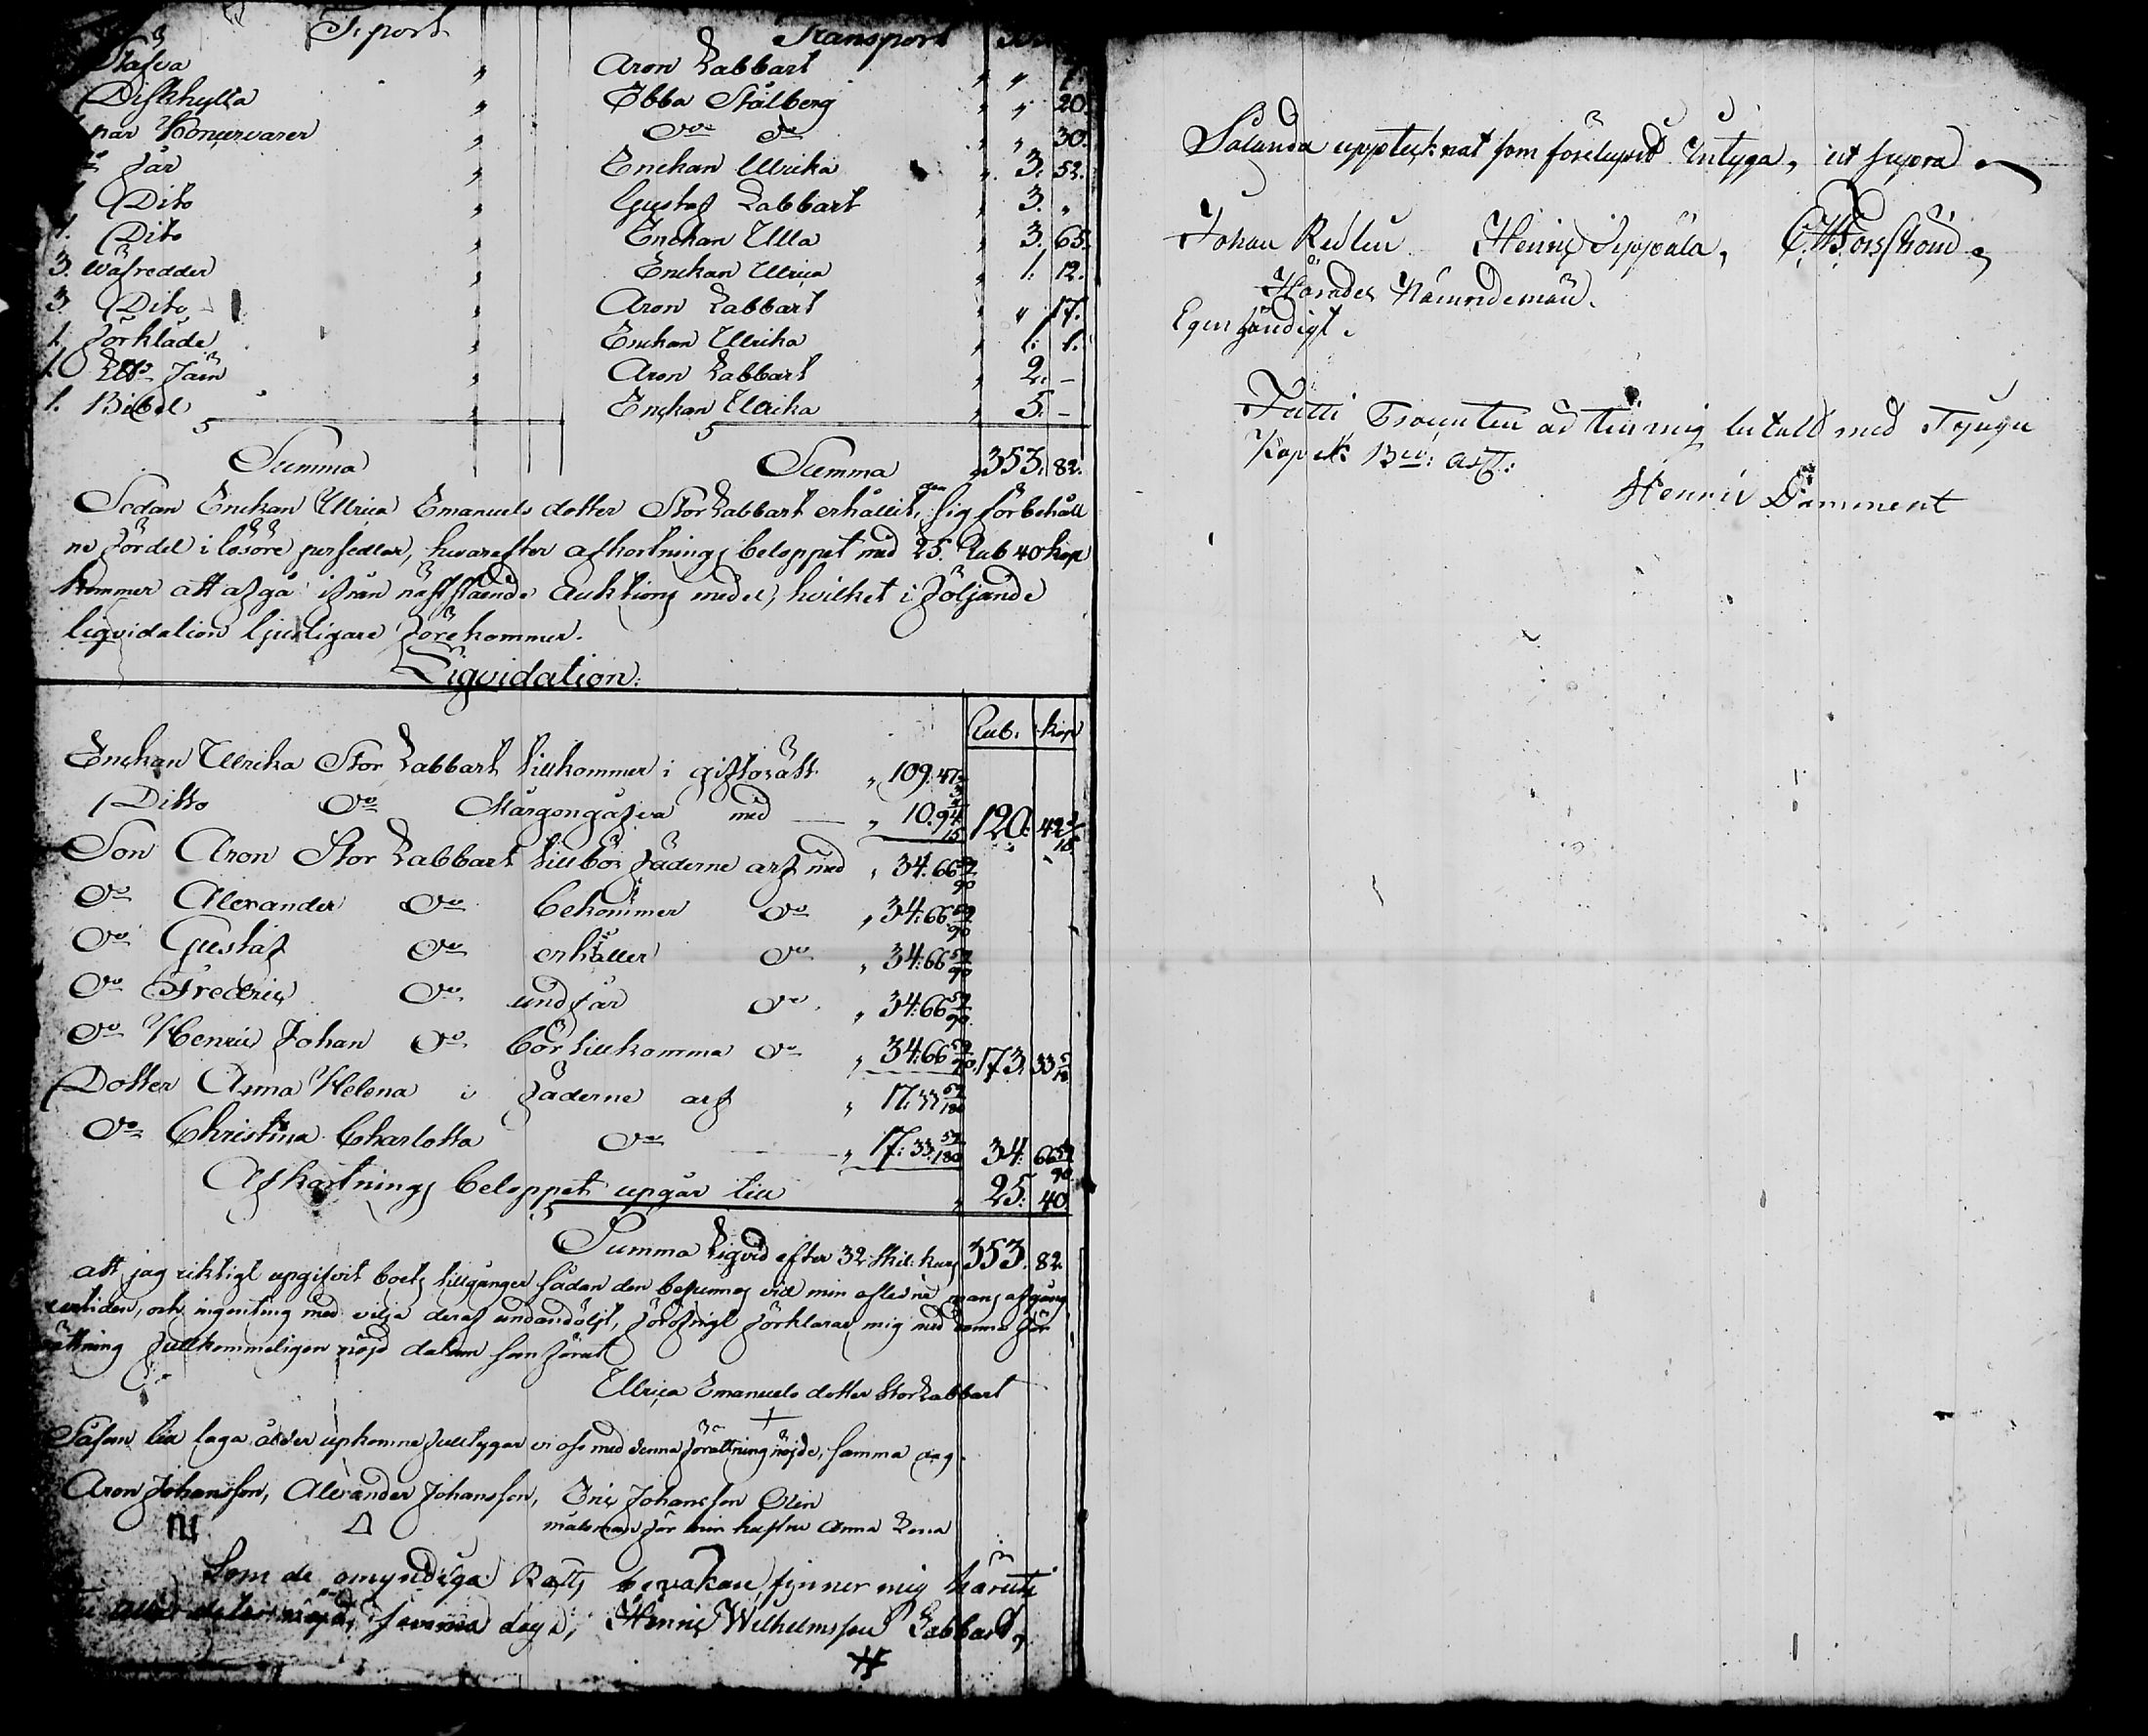 Tr:port Transport
Stafva " Aron Labbart " " 1.
Diskhylla " Ebba Stålberg " " 20.
par " Do do " " 30.
Får " Enckan Ullrika " 3. 52.
Dito " Gustaf Labbart " 3. "
1. Dito " Enckan Ulla " 3. 65.
3. Wäfredder " Enckan Ulrica " 1. 12.
3 Dito " Aron Labbart " " 17.
1. Förkläde " Enckan Ullrika " 1. 1.
1. " Aron Labbart " 2. –
1. Bibel " Enckan Ullrika " 5. –
Summa Summa " 353. 82.
Sedan Enckan Ullrica Emanuels dotter Stor Labbart erhållit, den sig förbehåll
ne fördel i lösöre persedlar, hvarefter afkortnings beloppet med 25. Rub 40 kop
kommer att afgå ifrån nästståënde Auktions medel, hvilket i följande
liqvidation ljusligare förekommer.
Liqvidation.
Rub. kop
Enckan Ullrika Stor Labbart tillkommer i giftorätt " 109. 47
Ditto Do Mårgongåfva med " 10. 94 120. 42
Son Aron Stor Labbart tillbör fäderne arf med " 34. 66 59/90
Do Alexander Do bekommer Do " 34: 66 59/90
Do Gustaf Do erhåller Do " 34: 66 59/90
Do Fredric Do undfår Do " 34: 66 59/90
Do Henric Johan Do bör tillkomma Do " 34: 66 59/90 173. 33 5/18
Dotter Anna Helena i fäderne arf " 17. 33 59/180
Do Christina Charlotta Do " 17: 33 59/180 34: 66 59/90
Afkortnings beloppet upgår till " 25: 40
Summa Liqvid efter 32 Skil: kurs 353. 82.
att jag riktigt upgifvit boets tillgånger sådan den befunnes vid min aflidne mans afgång
tiden, och ingenting med vilja deraf undandöljt, förklarar mig med denna för
rättning fullkommeligen nöjd datum som förut
Ullrica Emanuels dotter Stor Labbart
Såsom till laga ålder upkomne fulltygar vi oss med denna förättning nöjde, samma dag.
Aron Johansson, Alexander Johansson, Eric Johansson Olin
målsman för min hustru Anna Lena
Som de omyndiga Rätts bevakare finner mig häruti
till alla delar nöjd, samma dag, Henric Wilhelmsson Labbart,
Sålunda upptecknat som förelupit Intyga, ut supra
Johan Redlin Henric Seppälä, C. W. Forsström
Härads Nämndemän.
Egenhändigt.
Fatti Procenten är till mig betald med Tjugu
Kopek Bco Ass:
Henric Damment